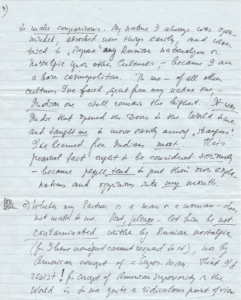 to make comparisons. By nature I always was open-
minded, absorbed new things easily, and never
tried to impose my Russian nationalism or
nostalgia over other cultures, – because I am
a born cosmopolitan. To me – of all other
cultures I've faced apart from my native one –
Indian one still remains the highest. It was
India that opened the Doors in the World to me
and taught me to move easily among "strangers".
I've learned from Indians most. This is
present fact ought to be considered seriously
– because people tend to put their own expla-
nations and opinions into my mouth.
2) Whether my Partner is a man or a woman – does
not matter to me. But, please – let him be not
contaminated either by Russian nostalgia
(for I have none and cannot respond to it), nor by
American concept of a Super-man. That I'd
resist! for concept of American superiority in the
World is to me quite a ridiculous point of view